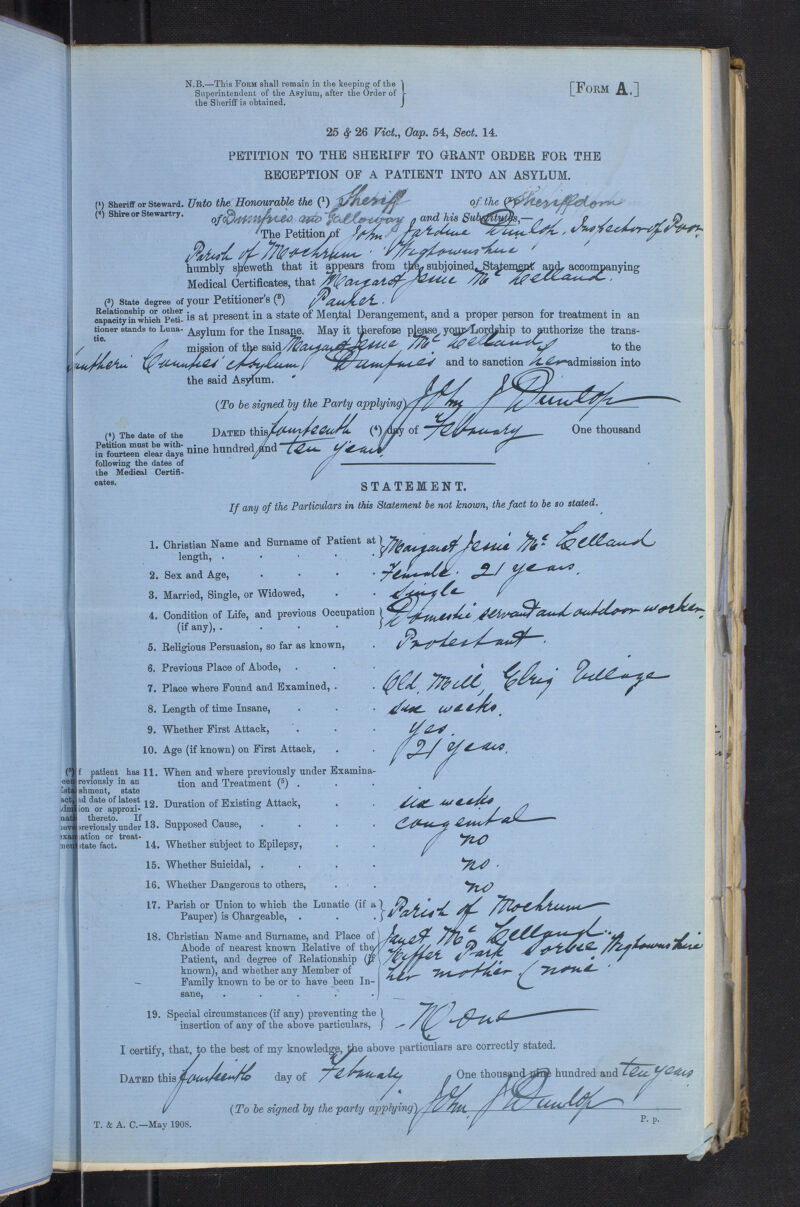 N.B.—This Form shall remain in the keeping of the
Superintendent of the Asylum, after the Order of
the Sheriff is obtained.
[Form A.]
25 & 26 Vict., Cap. 54, Sect. 14.
PETITION TO THE SHERIFF TO GRANT ORDER FOR THE
RECEPTION OF A PATIENT INTO AN ASYLUM.
(¹) Sheriff or Steward.
(²) Shire or Stewartry.
Unto the Honourable the (¹) Sheriff of the (²) Sheriffdom
of Dumfries and Galloway and his Substitutes,—
The Petition of John Jardine Dunlop, Inspector of Poor
Parish of Mochrum Wigtownshire
humbly sheweth that it appears from the subjoined Statement and accompanying
Medical Certificates, that Margaret Jessie Mc Lelland.
(³) State degree of
Relationship or other
capacity in which Peti-
tioner stands to Luna-
tic.
your Petitioner's (³) Pauper.
is at present in a state of Mental Derangement, and a proper person for treatment in an
Asylum for the Insane. May it therefore please your Lordship to authorize the trans-
mission of the said Margaret Jessie Mc Lelland to the
Southern Counties Asylum Dumfries and to sanction her admission into
the said Asylum.
(To be signed by the Party applying) John J Dunlop
(⁴) The date of the
Petition must be with-
in fourteen clear days
following the dates of
the Medical Certifi-
cates.
Dated this fourteenth (⁴) day of February One thousand
nine hundred and ten years.
STATEMENT.
If any of the Particulars in this Statement be not known, the fact to be so stated.
1. Christian Name and Surname of Patient at
length, . Margaret Jessie Mc Lelland
2. Sex and Age, Female. 21 years.
3. Married, Single, or Widowed, Single
4. Condition of Life, and previous Occupation
(if any), . Domestic servant and outdoor worker.
5. Religious Persuasion, so far as known, Protestant.
6. Previous Place of Abode, .
7. Place where Found and Examined, . Old Mill, Elrig Village
8. Length of time Insane, six weeks.
9. Whether First Attack, yes.
10. Age (if known) on First Attack, 21 years.
(⁵) If patient has
been previously in an
Establishment, state
fact, and date of latest
admission or approxi-
mate thereto. If
never previously under
examination or treat-
ment state fact.
11. When and where previously under Examina-
tion and Treatment (⁵) .
12. Duration of Existing Attack, six weeks
13. Supposed Cause, congenital
14. Whether subject to Epilepsy, no
15. Whether Suicidal, . no.
16. Whether Dangerous to others, no
17. Parish or Union to which the Lunatic (if a
Pauper) is Chargeable, . Parish of Mochrum
18. Christian Name and Surname, and Place of
Abode of nearest known Relative of the
Patient, and degree of Relationship (if
known), and whether any Member of
Family known to be or to have been In-
sane,
Janet Mc Lelland.
Heffer Park Sorbie Wigtownshire
her mother (none
19. Special circumstances (if any) preventing the
insertion of any of the above particulars, - None
I certify, that, to the best of my knowledge, the above particulars are correctly stated.
Dated this fourteenth day of February One thousand nine hundred and ten years
(To be signed by the party applying) John J Dunlop
T. & A. C.—May 1908.
P. p.